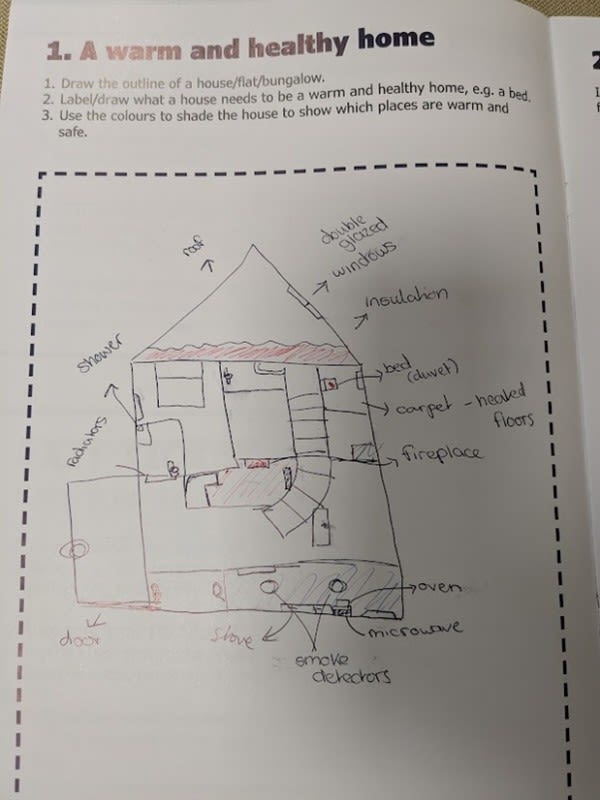 1. A warm and healthy home
1. Draw the outline of a house/flat/bungalow.
2. Label/draw what a house needs to be a warm and healthy home, e.g. a bed.
3. Use the colours to shade the house to show which places are warm and
safe.
roof
double
glazed
windows
insulation
shower
bed
(duvet)
carpet - heated
floors
radiators
fireplace
oven
door
stove
microwave
smoke
detectors